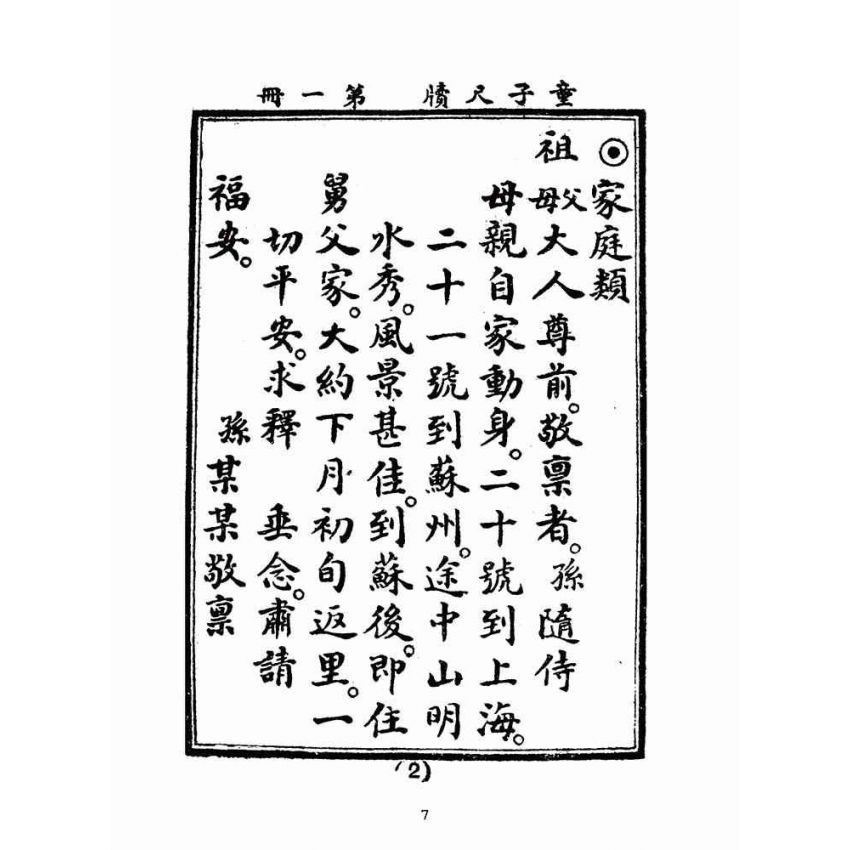 童子尺牘 第一冊
◉家庭類
祖父母大人尊前。敬禀者。孫隨侍
母親自家動身。二十號到上海。
二十一號到蘇州。途中山明
水秀。風景甚佳。到蘇後。即住
舅父家。大約下月初旬返里。一
切平安。求釋 垂念。肅請
福安。 孫某某敬禀
(2)
7